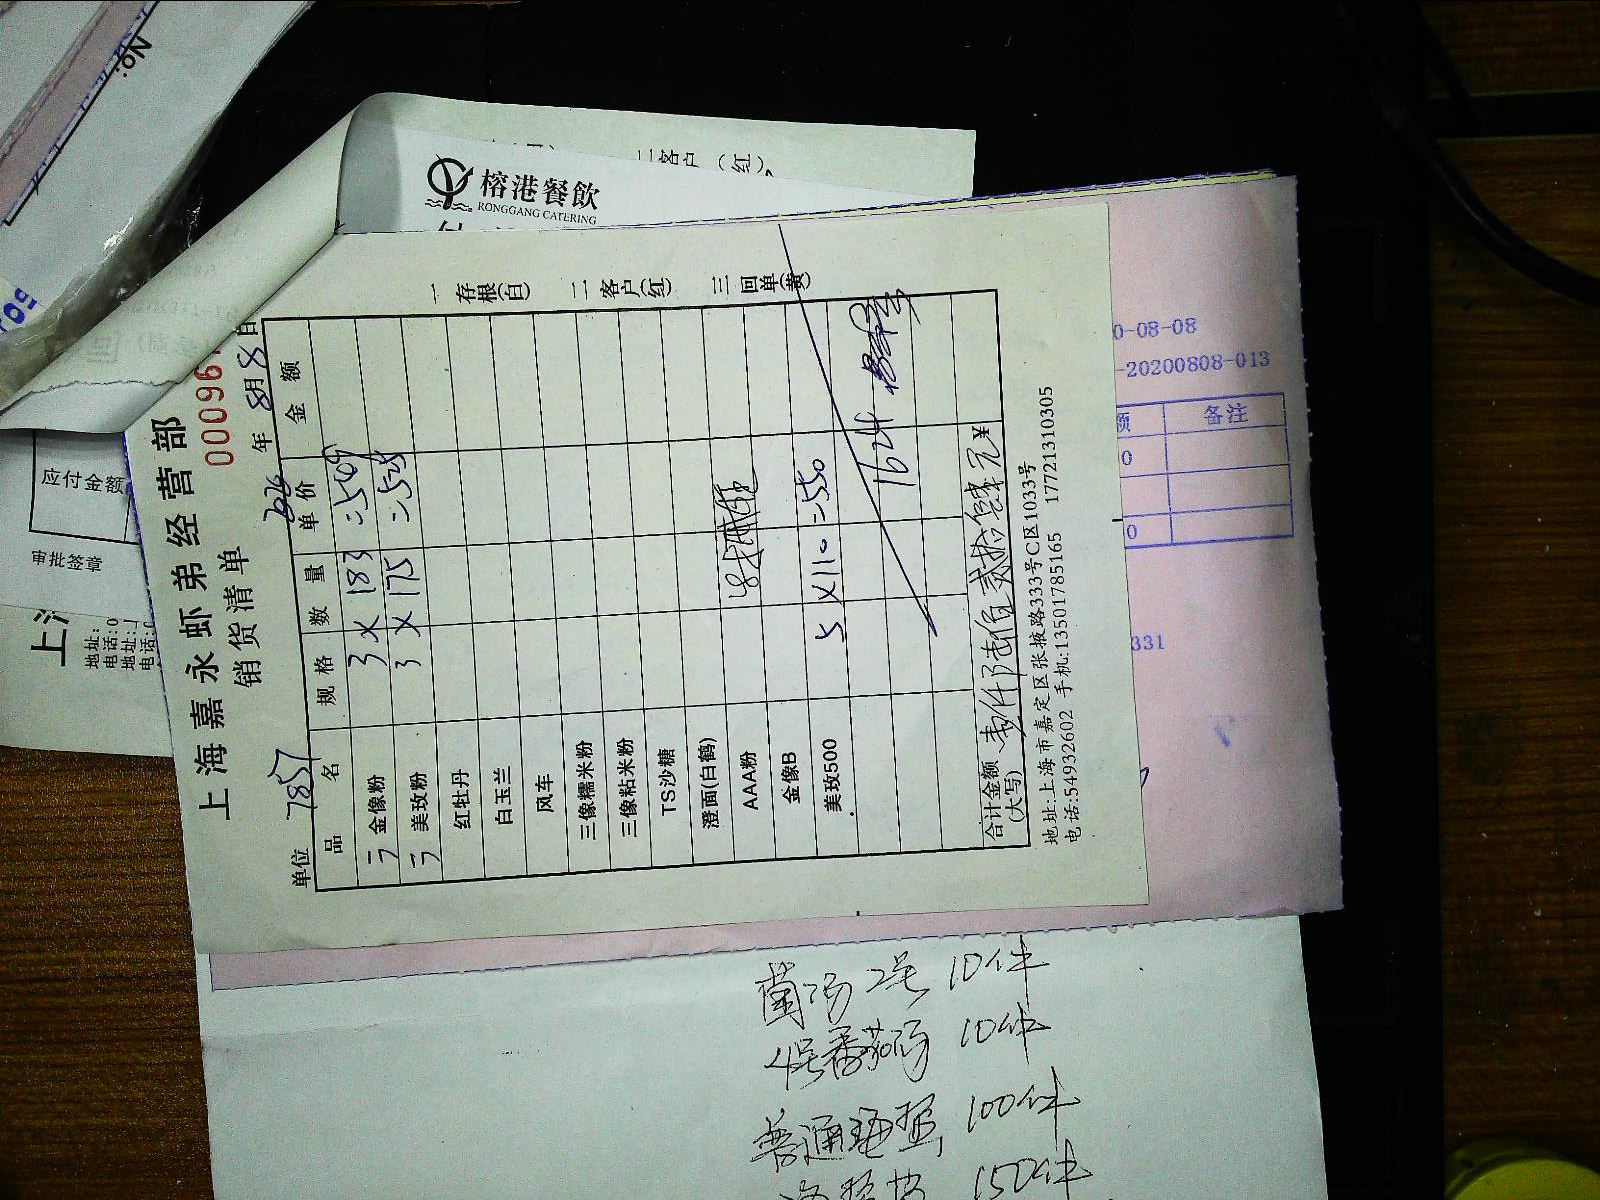 上海嘉永虾弟经营部
销货清单
000961
单位 7857
年 8月8日
品名 规格 数量 单价 金额
金像粉 3×183=549
美玫粉 3×175=525
红牡丹
白玉兰
风车
三像糯米粉
三像粘米粉
TS沙糖
澄面(白鹤)
AAA粉
金像B
美玫500 5×110=550
1624
合计金额(大写) 壹仟陆佰贰拾肆元 ¥
地址:上海市嘉定区张掖路333号C区1033号
电话:54932602 手机:13501785165 17721310305
一存根(白) 二客户(红) 三回单(黄)
榕港餐飲
RONGGANG CATERING
三客户(红)
No:
应付金额
审批签章
地址:
电话:0
地址:
电话:
0-08-08
-20200808-013
额 备注
0
0
331
菌汤2号 10件
4号番茄汤 10件
普通 100件
150件